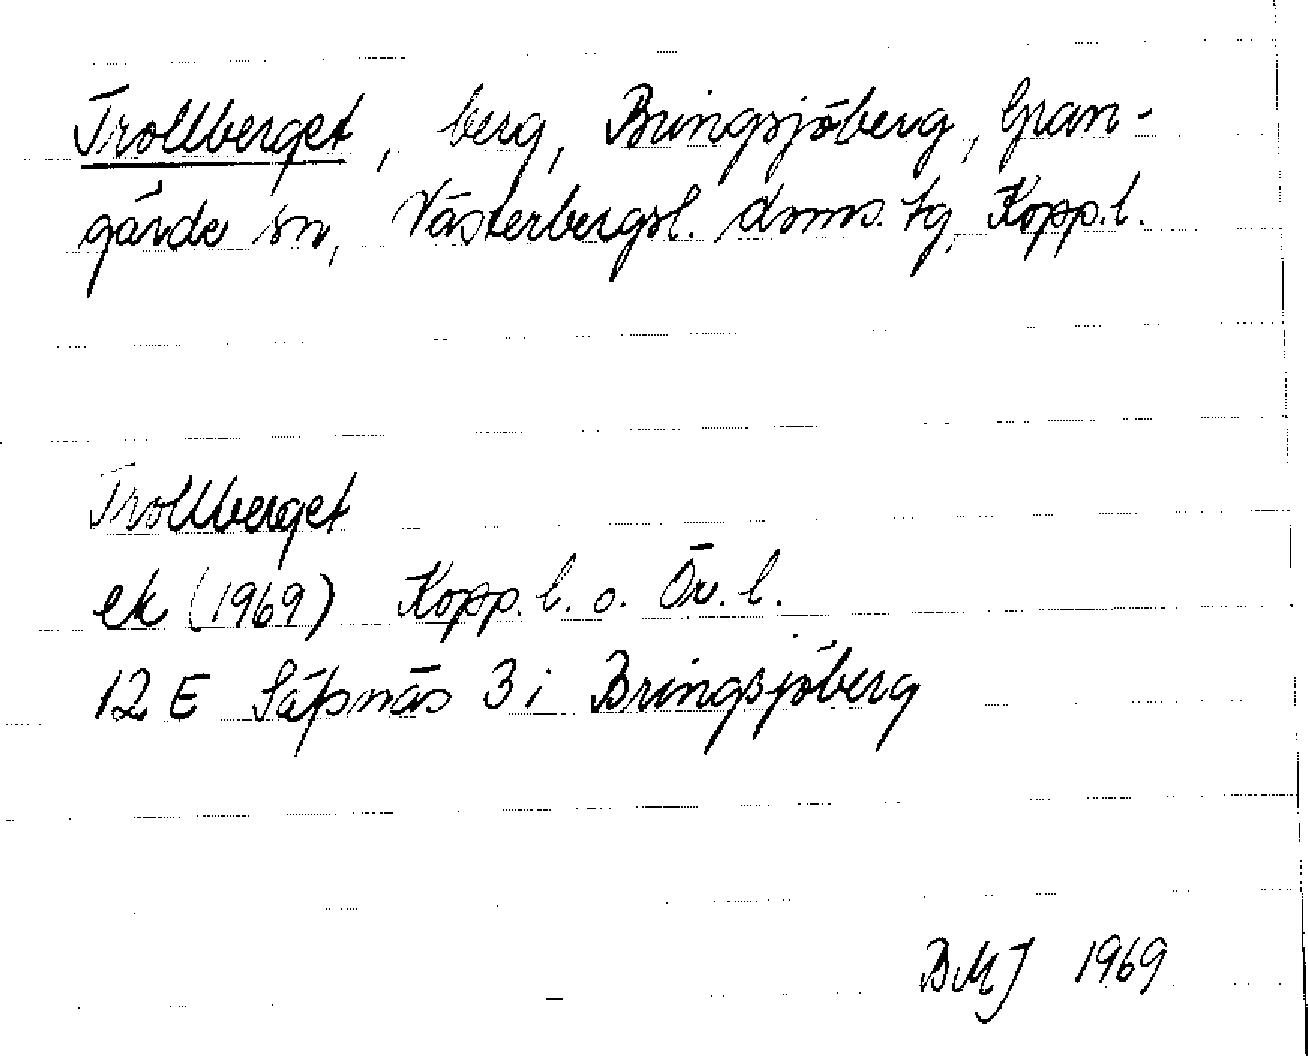 Trollberget, berg, Bringsjöberg, Gran-
gärde sn, Västerbergsl. doms. tg, Kopp. l.
Trollberget
ek (1969) Kopp. l. o. Ör. l.
12 E Säfsnäs 3 i Bringsjöberg
BMJ 1969